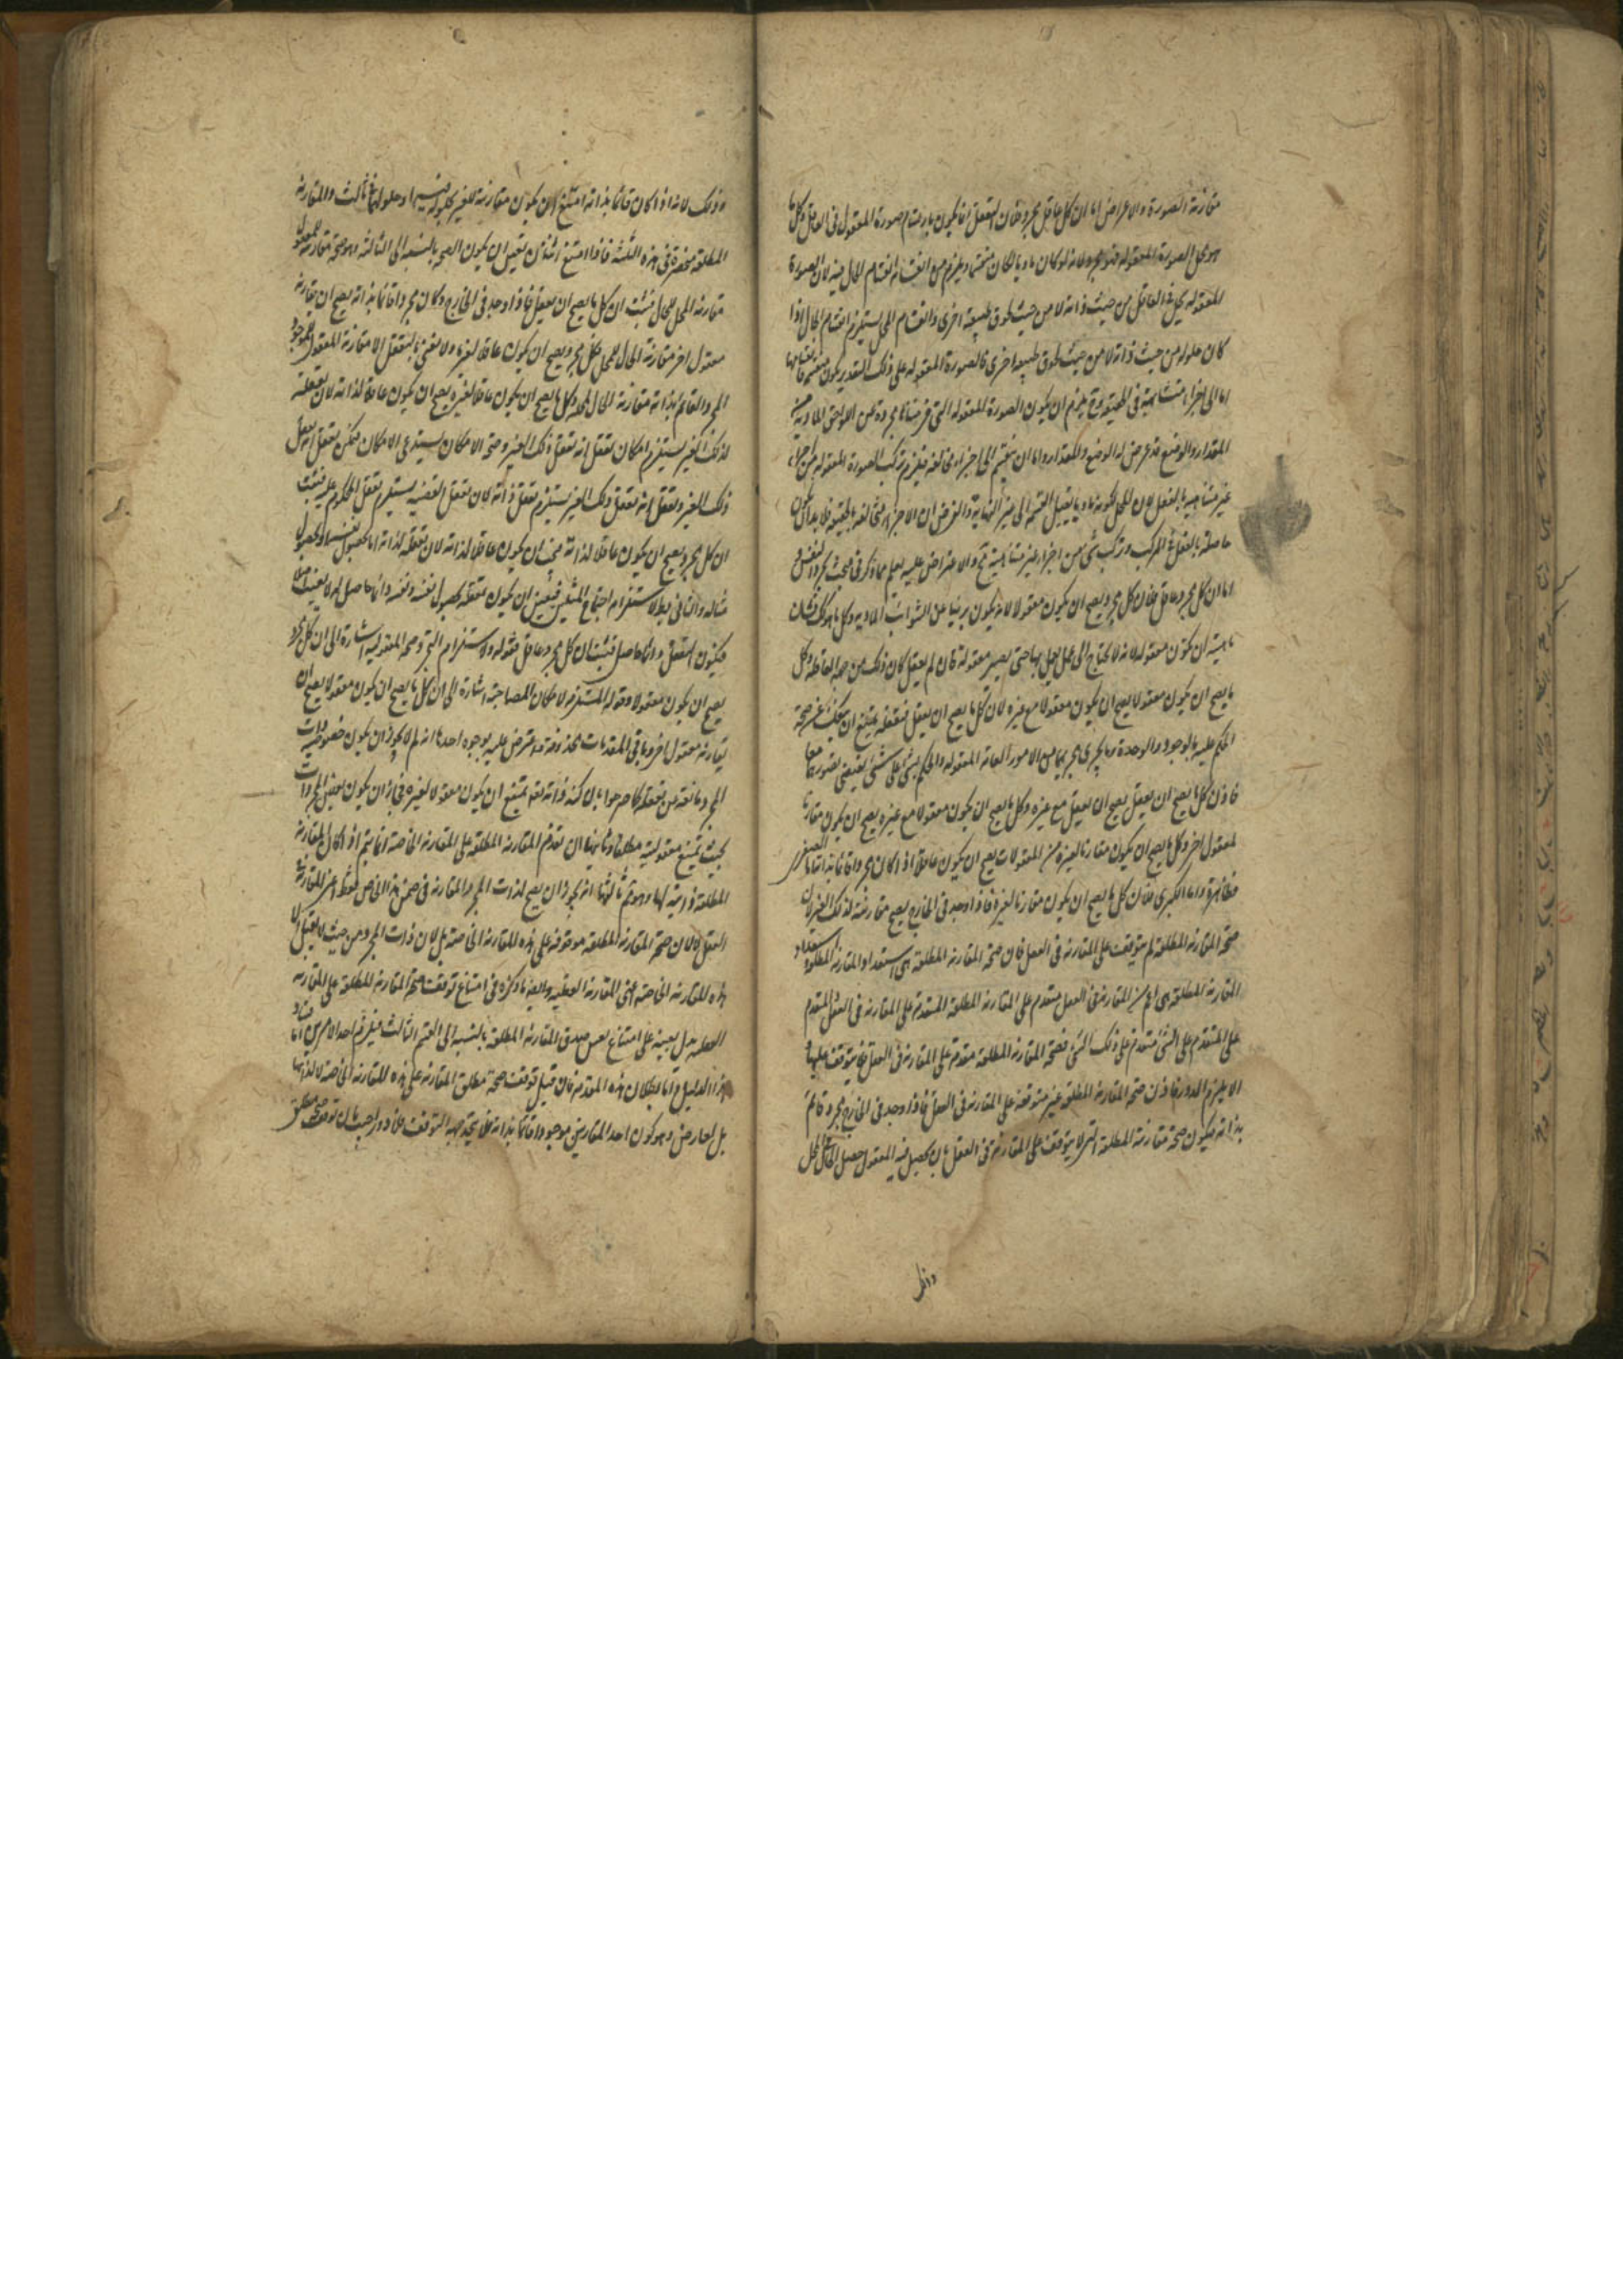 مقارنة الصورة والاعراض اما ان كل عاقل مجرد فلان التعقل انما يكون بارتسام صورة المعقول فى العاقل وكل ما
هو محل الصورة المعقولة فهو مجرد لانه لو كان ماديا لكان منقسما ويلزم من انقسامه انقسام الحال فيه لان الصورة
المعقولة تحل فى العاقل من حيث ذاته لا من حيث لحوق طبيعة اخرى وانقسام المحل يستلزم انقسام الحال اذا
كان حلوله من حيث ذاته لا من حيث لحوق طبيعة اخرى فالصورة المعقولة على ذلك التقدير يكون منقسمة فانقسامها
اما الى اجزاء متشابهة فى الحقيقة فيلزم ان يكون الصورة المعقولة التى فرضناها مجردة عن اللواحق المادية من
المقدار والوضع قد عرض لها الوضع والمقدار واما ان ينقسم الى اجزاء مخالفة فيلزم تركب الصورة المعقولة من اجزاء
غير متناهية بالفعل لان المحل لكونه ماديا يقبل القسمة الى غير النهاية والفرض ان الاجزاء مخالفة بالحقيقة فلابد ان يكون
حاصلة بالفعل فى المركب وتركب شئ من اجزاء غير متناهية مح والاعتراض عليه يعلم مما ذكر فى مبحث تجرد النفس و
اما ان كل مجرد عاقل فلان كل مجرد يصح ان يكون معقولا لانه يكون بريئا عن الشوائب المادية وكل ما هو كذلك فشان
ماهيته ان يكون معقولة لانه لا يحتاج الى عمل يعمل بها حتى يصير معقولة فان لم يعقل كان ذلك من جهة العاقلة وكل
ما يصح ان يكون معقولا يصح ان يكون معقولا مع غيره لان كل ما يصح ان يعقل فتعقله يمتنع ان ينفك عن صحة
الحكم عليه بالوجود والوحدة وما يجرى مجراهما من الامور العامة المعقولة والحكم بشئ على شئ يقتضى تصورهما معا
فاذن كل ما يصح ان يعقل يصح ان يعقل مع غيره وكل ما يصح ان يكون معقولا مع غيره يصح ان يكون مقارنا
لمعقول اخر وكل ما يصح ان يكون مقارنا لغيره من المعقولات يصح ان يكون عاقلا اذا كان مجردا قائما بذاته اما الصغرى
فظاهرة واما الكبرى فلان كل ما يصح ان يكون مقارنا لغيره فاذا وجد فى الخارج يصح مقارنته لذلك الغير لان
صحة المقارنة المطلقة لم يتوقف على المقارنة فى العقل فان صحة المقارنة المطلقة هى استعداد المقارنة المطلقة واستعداد
المقارنة المطلقة هى اعم من المقارنة فى العقل متقدم على المقارنة المطلقة المتقدمة على المقارنة فى العقل والمتقدم
على المتقدم على الشئ متقدم على ذلك الشئ فصحة المقارنة المطلقة متقدمة على المقارنة فى العقل فلا يتوقف عليها و
الا يلزم الدور فاذن صحة المقارنة المطلقة غير متوقفة على المقارنة فى العقل فاذا وجد فى الخارج مجرد قائم
بذاته فيكون صحة مقارنته المطلقة التى لا يتوقف على المقارنة فى العقل بان يحصل فيه المعقول حصول الحال فى المحل
وذلك
وذلك لانه اذا كان قائما بذاته امتنع ان يكون مقارنته للغير بحلوله فيه او حلولهما فى ثالث والمقارنة
المطلقة منحصرة فى هذه الثلثة فاذا امتنع اثنان يتعين ان يكون الصحة بالنسبة الى الثالثة وهو صحة مقارنة المعقول
مقارنة المحل للحال فثبت ان كل ما يصح ان يعقل فاذا وجد فى الخارج وكان مجردا قائما بذاته يصح ان يقارنه
معقول اخر مقارنة الحال للمحل فكل مجرد يصح ان يكون عاقلا لغيره ولا نعنى بالتعقل الا مقارنة المعقول للموجود
المجرد القائم بذاته مقارنة الحال لمحله وكل ما يصح ان يكون عاقلا لغيره يصح ان يكون عاقلا لذاته لان تعقله
لذلك الغير يستلزم امكان تعقل انه تعقل ذلك الغير وصحة الامكان يستدعى الامكان فيمكن تعقل انه تعقل
ذلك الغير وتعقل انه تعقل ذلك الغير يستلزم تعقل ذاته لان تعقل القضية يستلزم تعقل المحكوم عليه فثبت
ان كل مجرد يصح ان يكون عاقلا لذاته فيجب ان يكون عاقلا لذاته لان تعقله لذاته اما بحصول نفسه او بحصول
مثاله والثانى بط لاستلزام اجتماع المثلين فتعين ان يكون تعقله بحصول نفسه ونفسه دائما حاصل له لا يغيب اصلا
فيكون التعقل دائما حاصل فثبت ان كل مجرد عاقل فقوله ولاستلزام التجرد صحة المعقولية اشارة الى ان كل مجرد
يصح ان يكون معقولا وقوله المستلزمة لامكان المصاحبة اشارة الى ان كل ما يصح ان يكون معقولا يصح ان
يقارنه معقول اخر وباقى المقدمات محذوفة واعترض عليه بوجوه احدها انه لم لا يجوز ان يكون خصوصيات ذوات
المجرد مانعة من تعقله كما صرحوا بان كنه ذاته تعالى يمتنع ان يكون معقولا لغيره فجاز ان يكون بعض المجردات
بحيث تمتنع معقوليته مطلقا وثانيها ان تقدم المقارنة المطلقة على المقارنة الخاصة انما يتم اذا كان المقارنة
المطلقة ذاتية لها وهو مم ثالثها انه يجوز ان يصح لذات المجرد المقارنة فى ضمن هذا الخاص فقط اعنى المقارنة فى
العقل لا لان صحة المقارنة المطلقة موقوفة على هذه المقارنة الخاصة بل لان ذات المجرد من حيث لا يقبل الا
هذه المقارنة الخاصة اعنى المقارنة العقلية وايضا ما ذكره فى امتناع توقف صحة المقارنة المطلقة على المقارنة
العقلية يدل بعينه على امتناع بعض صدق المقارنة المطلقة بالنسبة الى القسم الثالث فيلزم احد الامرين اما فساد
هذا الدليل واما بطلان هذه المقدمة فان قيل توقف صحة مطلق المقارنة على هذه المقارنة الخاصة لا لذاتها
بل لعارض وهو كون احد المقارنين موجودا قائما بذاته فلا يتحد جهة التوقف فلا دور احيب بان توقف صحة مطلق